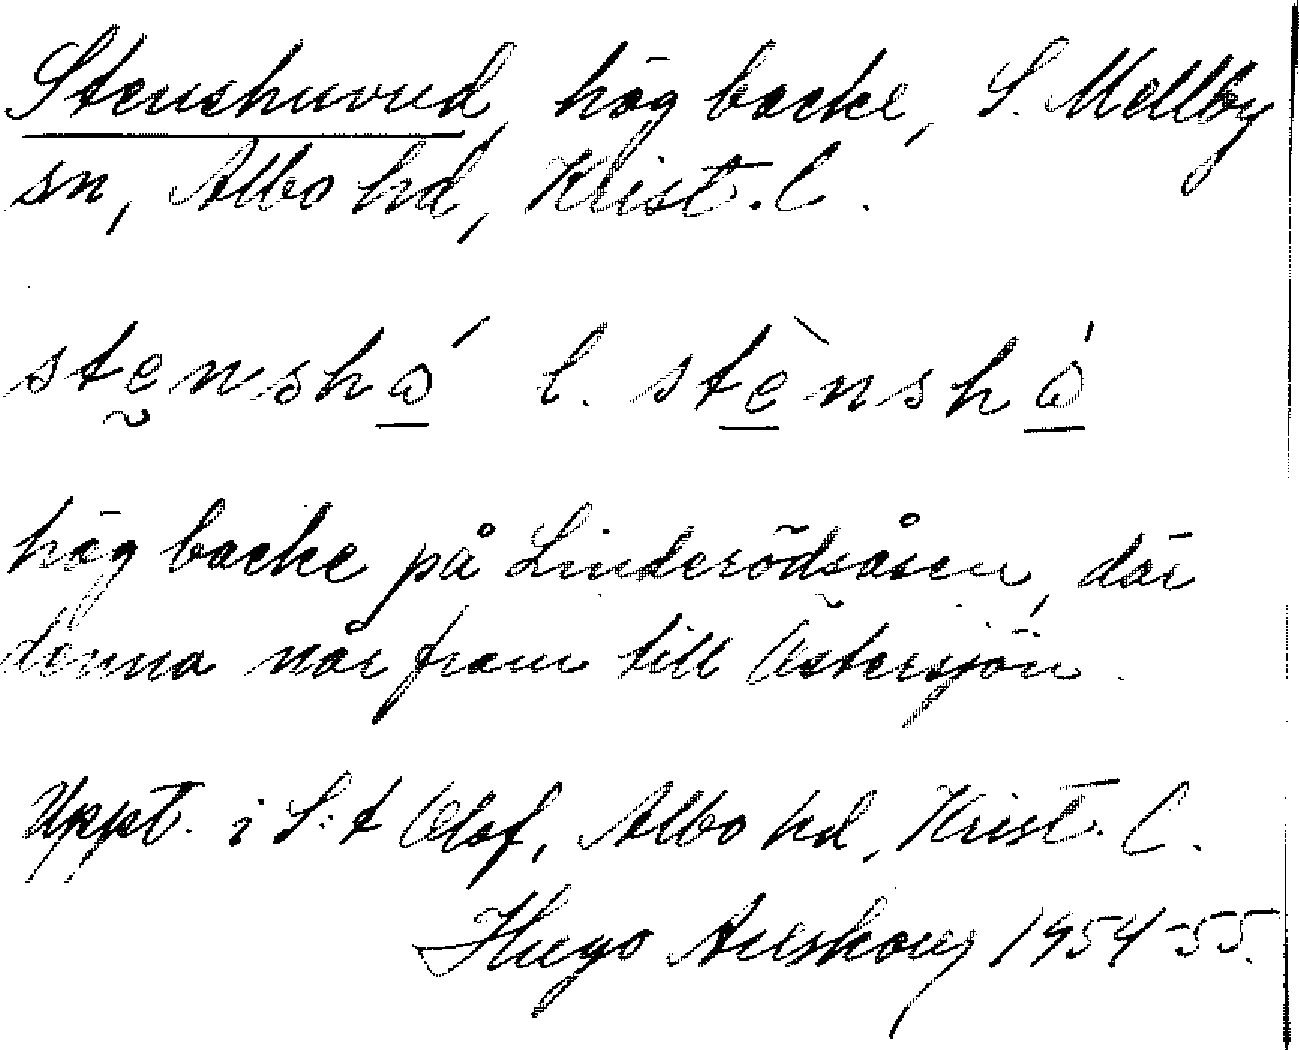 Stenshuvud, hög backe, S. Mellby
sn, Albo hd, Krist. l.
stḛnshώ̱ l. stè̱nshώ̱
hög backe på Linderödsåsen, där
denna når fram till Östersjön.
Uppt. i S:t Olof, Albo hd, Krist. l.
Hugo Areskoug 1954-55.